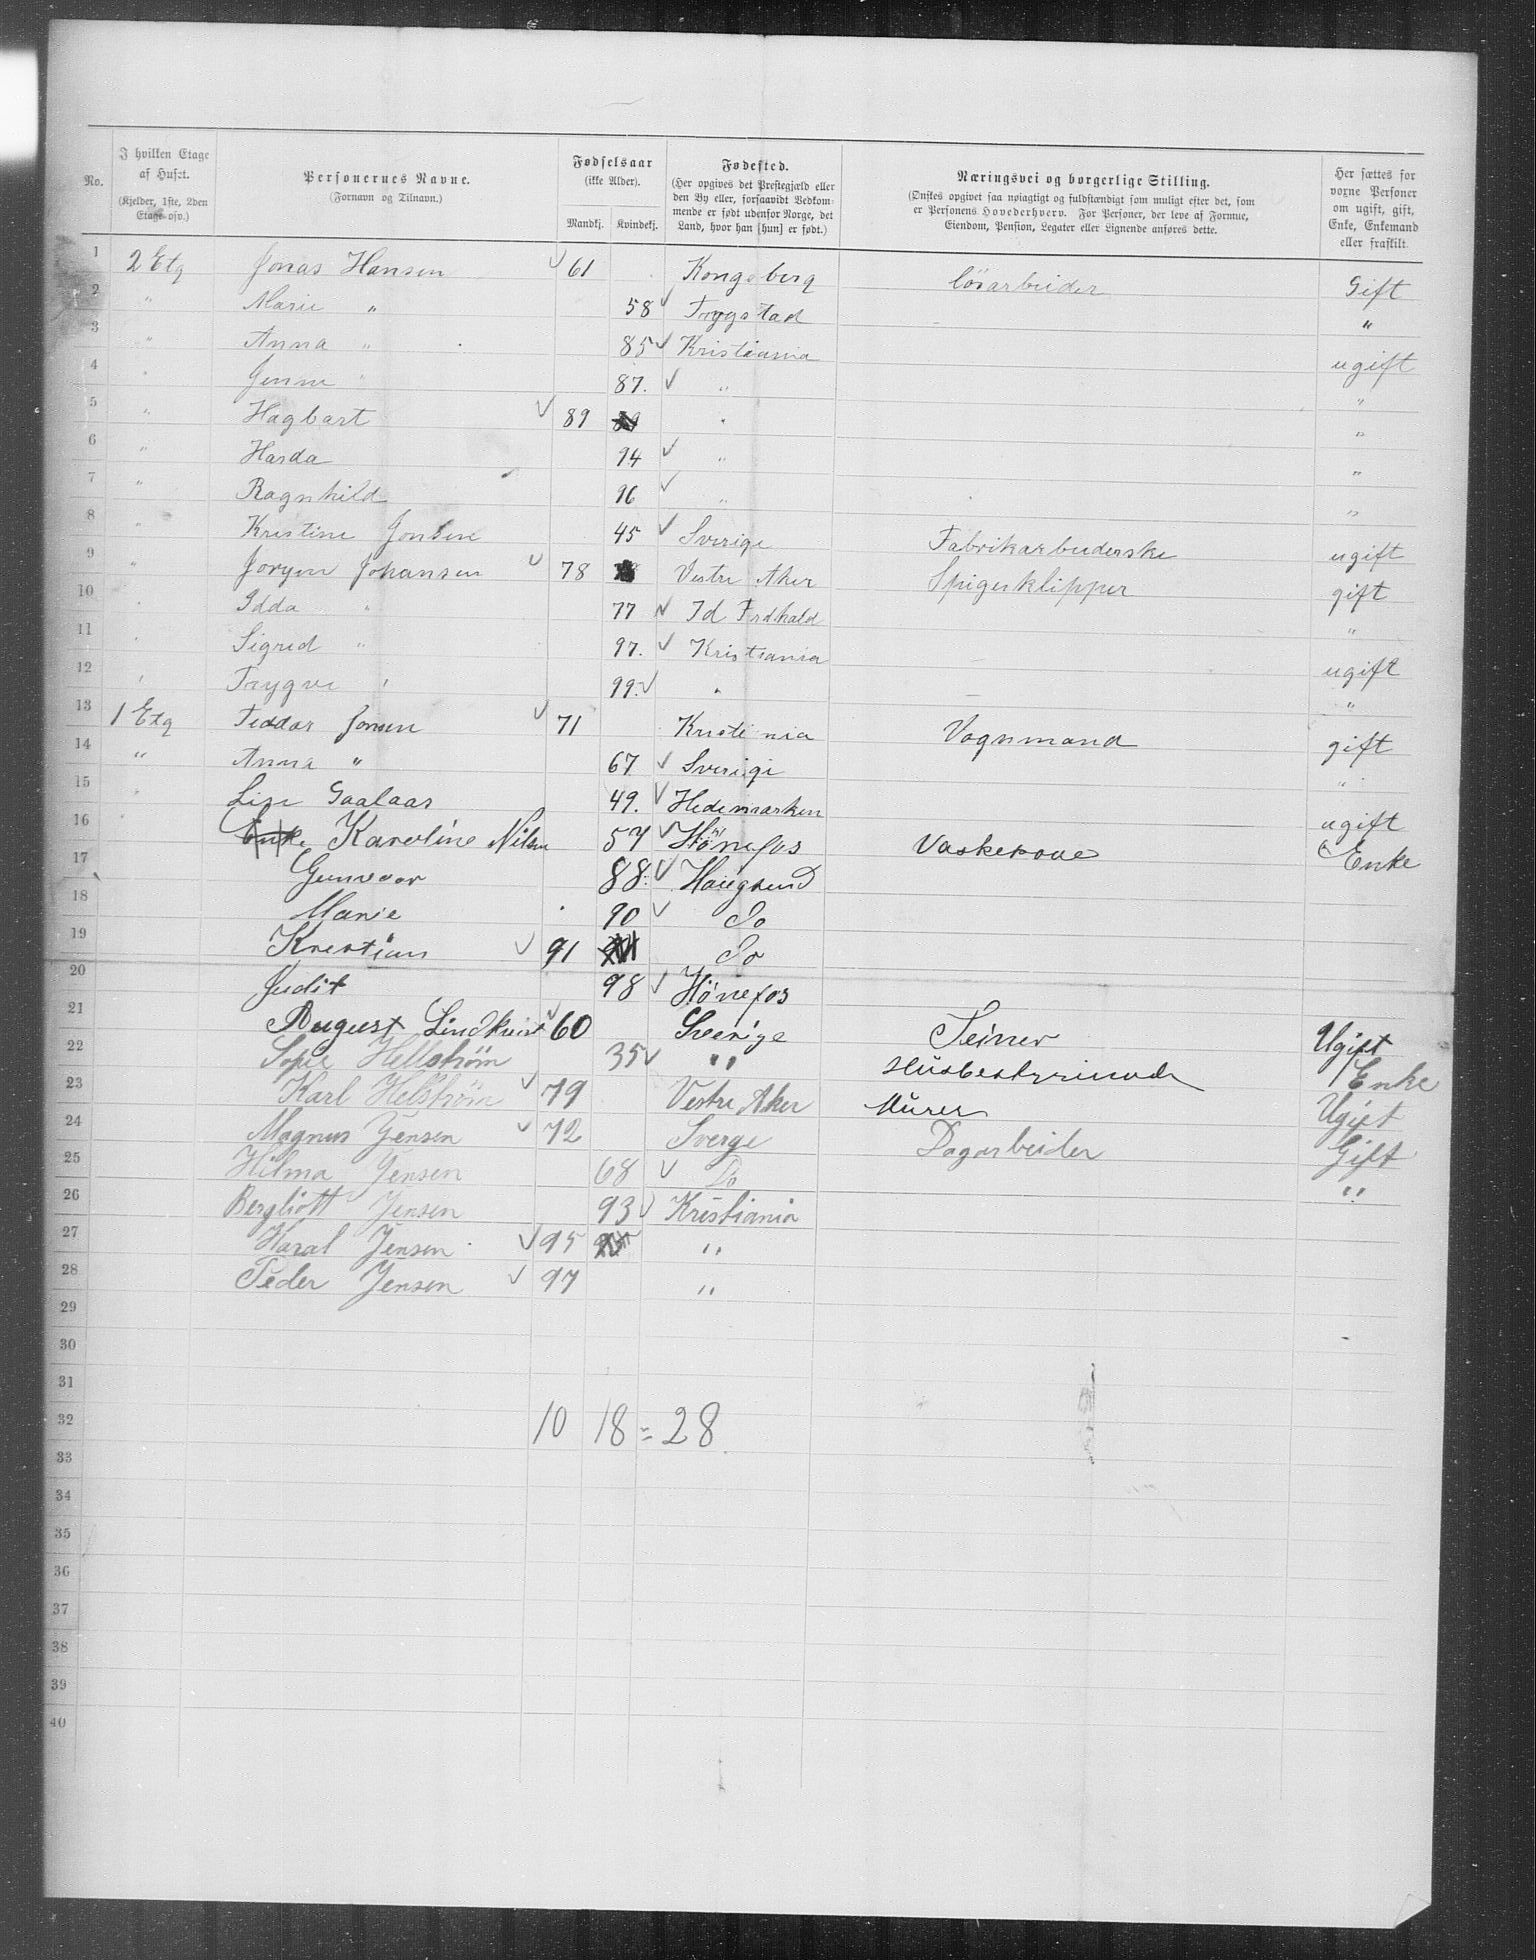 No.
I hvilken Etage af Huset. (Kjelder, 1ste, 2den Etage osv.)
Personernes Navne. (Fornavn og Tilnavn.)
Fødselsaar (ikke Alder). Mandkj. Kvindekj.
Fødested. (Her opgives det Prestegjæld eller den By eller, forsaavidt Vedkommende er født udenfor Norge, det Land, hvor han [hun] er født.)
Næringsvei og borgerlige Stilling. (Ønskes opgivet saa nøiagtigt og fuldstændigt som muligt efter det, som er Personens Hovederhverv. For Personer, der leve af Formue, Eiendom, Pension, Legater eller Lignende anføres dette.
Her sættes for vorne Personer om ugift, gift, Enke, Enkemand eller fraskilt.
1 2 Etg Jonas Hansen 61 Kongsberg løsarbeider Gift
2 " Marie " 58 Trygstad "
3 " Anna " 85 Kristiania ugift
4 " Jenni " 87. " "
5 " Hagbart 89 " "
6 " Harda 94 " "
7 " Ragnhild 96 " "
8 " Kristine Jonsen 45 Sverige Fabrikarbeiderske ugift
9 " Jorgen Johansen 78 Vestre Aker Spigerklipper gift
10 " Idda " 77 Id Frdhald "
11 " Sigrid " 97. Kristiania ugift
12 " Trygve " 99. " "
13 1 Etg Feddor Jonsen 71 Kristinia Vognmand gift
14 " Anna " 67 Sverige "
15 " Lise Gaalaas 49. Hedemarken ugift
16 Enke Karoline Nilsen 57 Hönefos Vaskekone Enke
17 Gunevor 88 Haugsund
18 Marie 90 Do
19 Krestian 91 Do
20 Judit 98 Hönefos
21 August Lindkvist 60 Sverige Ugift
22 Sofie Hellström 35 " Husbestyrinde Enke
23 Karl Helström 79 Vestre Aker Murer Ugift
24 Magnus Jensen 72 Sverge Dagarbeider Gift
25 Hilma Jensen 68 Do "
26 Bergliott Jensen 93 Kristiania
27 Haral Jensen 95 "
28 Peder Jensen 97 "
29
30
31
32 10 18 = 28
33
34
35
36
37
38
39
40